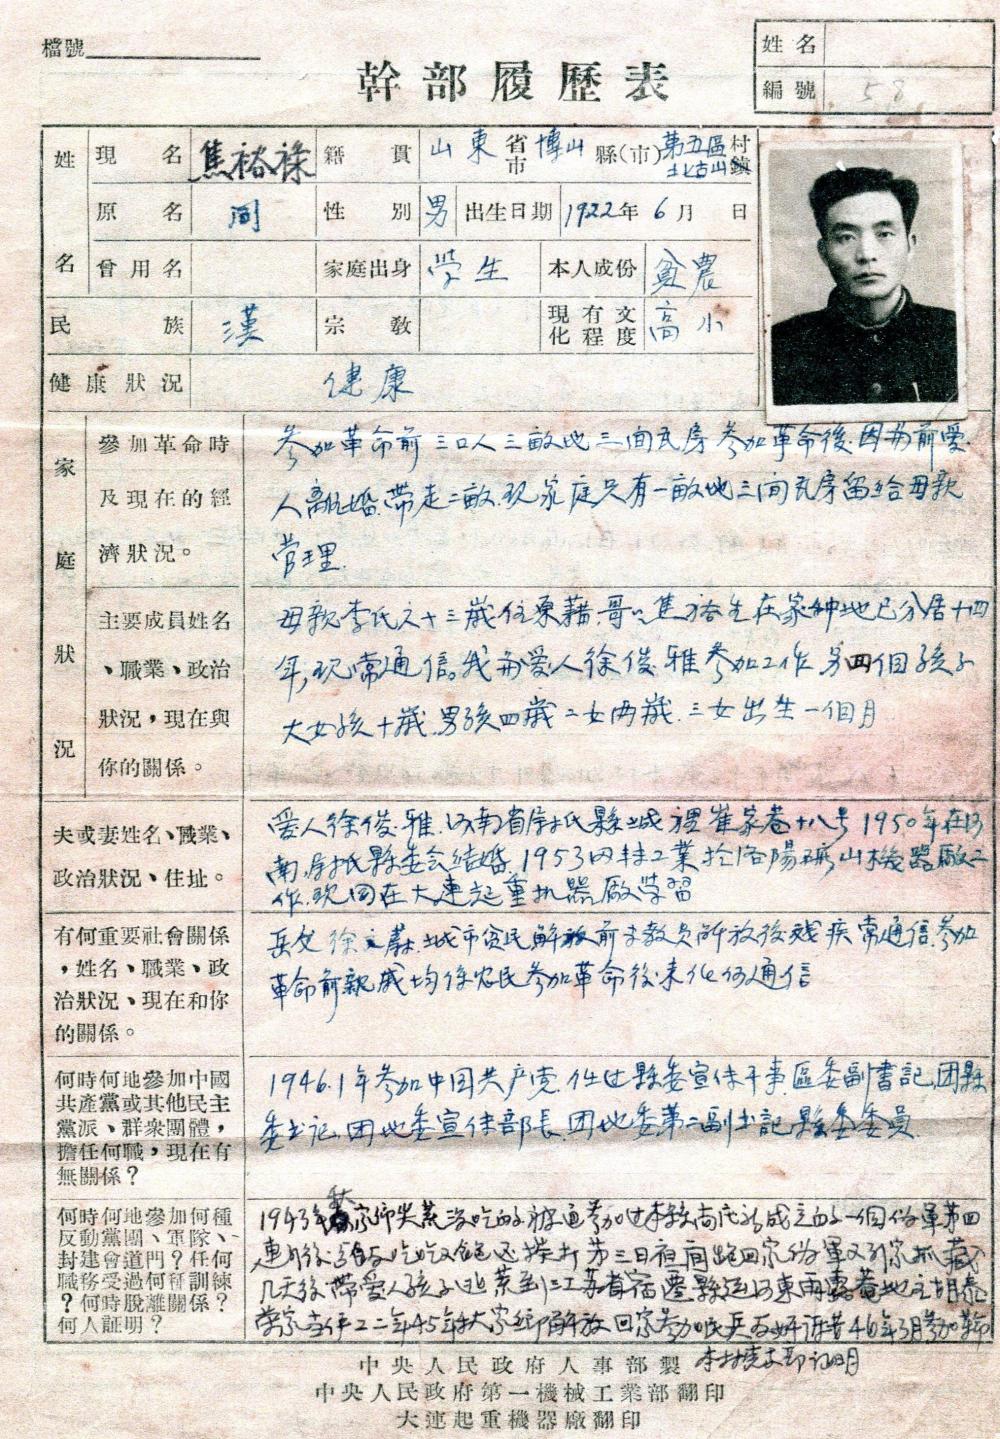 檔號
姓名
編號 58
幹部履歷表
姓名 現名 焦裕祿 籍貫 山東省市 博山縣(市) 第五區北古山村鎮
原名 同 性別 男 出生日期 1922年6月 日
曾用名 家庭出身 學生 本人成份 貧農
民族 漢 宗教 現有文化程度 高小
健康狀況 健康
家庭狀況
參加革命時及現在的經濟狀況。
參加革命前三口人三畝地三间瓦房.參加革命後.因为前爱
人離婚.帶走二畝.现家庭只有一畝地三间瓦房留给母親
管理.
主要成員姓名、職業、政治狀況,現在與你的關係。
母親李氏六十三歲住原藉.哥哥焦裕生在家种地已分居十四
年,现常通信。我和爱人徐俊雅參加工作.另四個孩子
大女孩十歲.男孩四歲二女两歲.三女出生一個月
夫或妻姓名、職業、政治狀況、住址。
爱人徐俊雅.河南省尉氏縣城裡崔家巷十八号1950年在河
南尉氏縣委会结婚.1953因轉工業於洛陽礦山機器廠工
作.现同在大連起重机器廠学習
有何重要社會關係,姓名、職業、政治狀況、現在和你的關係。
岳父徐 城市贫民解放前 教員解放後残疾常通信.参加
革命前親戚均係农民参加革命後未 何通信
何時何地參加中國共產黨或其他民主黨派、群衆團體,擔任何職,現在有無關係?
1946.1年参加中国共产党.任过縣委宣传干事.區委副書記.团縣
委书记.团地委宣传部長.团地委第二副书記.縣委委員
何時何地參加何種反動黨團、軍隊、封建會道門?任何職務受過何種訓練?何時脫離關係?何人証明?
1943年秋家 荒没吃的被 参加过本縣 成立的一個伪軍第四
連 后 吃 又 还挨打 第三日夜间跑回家伪軍又到家抓.藏
几天後.帶爱人孩子逃荒到江苏省宿遷縣 河東 地主胡
家 二年45年秋 家 解放回家参加民兵 46年3月参加革命
本村 支部证明
中央人民政府人事部製
中央人民政府第一機械工業部翻印
大連起重機器廠翻印